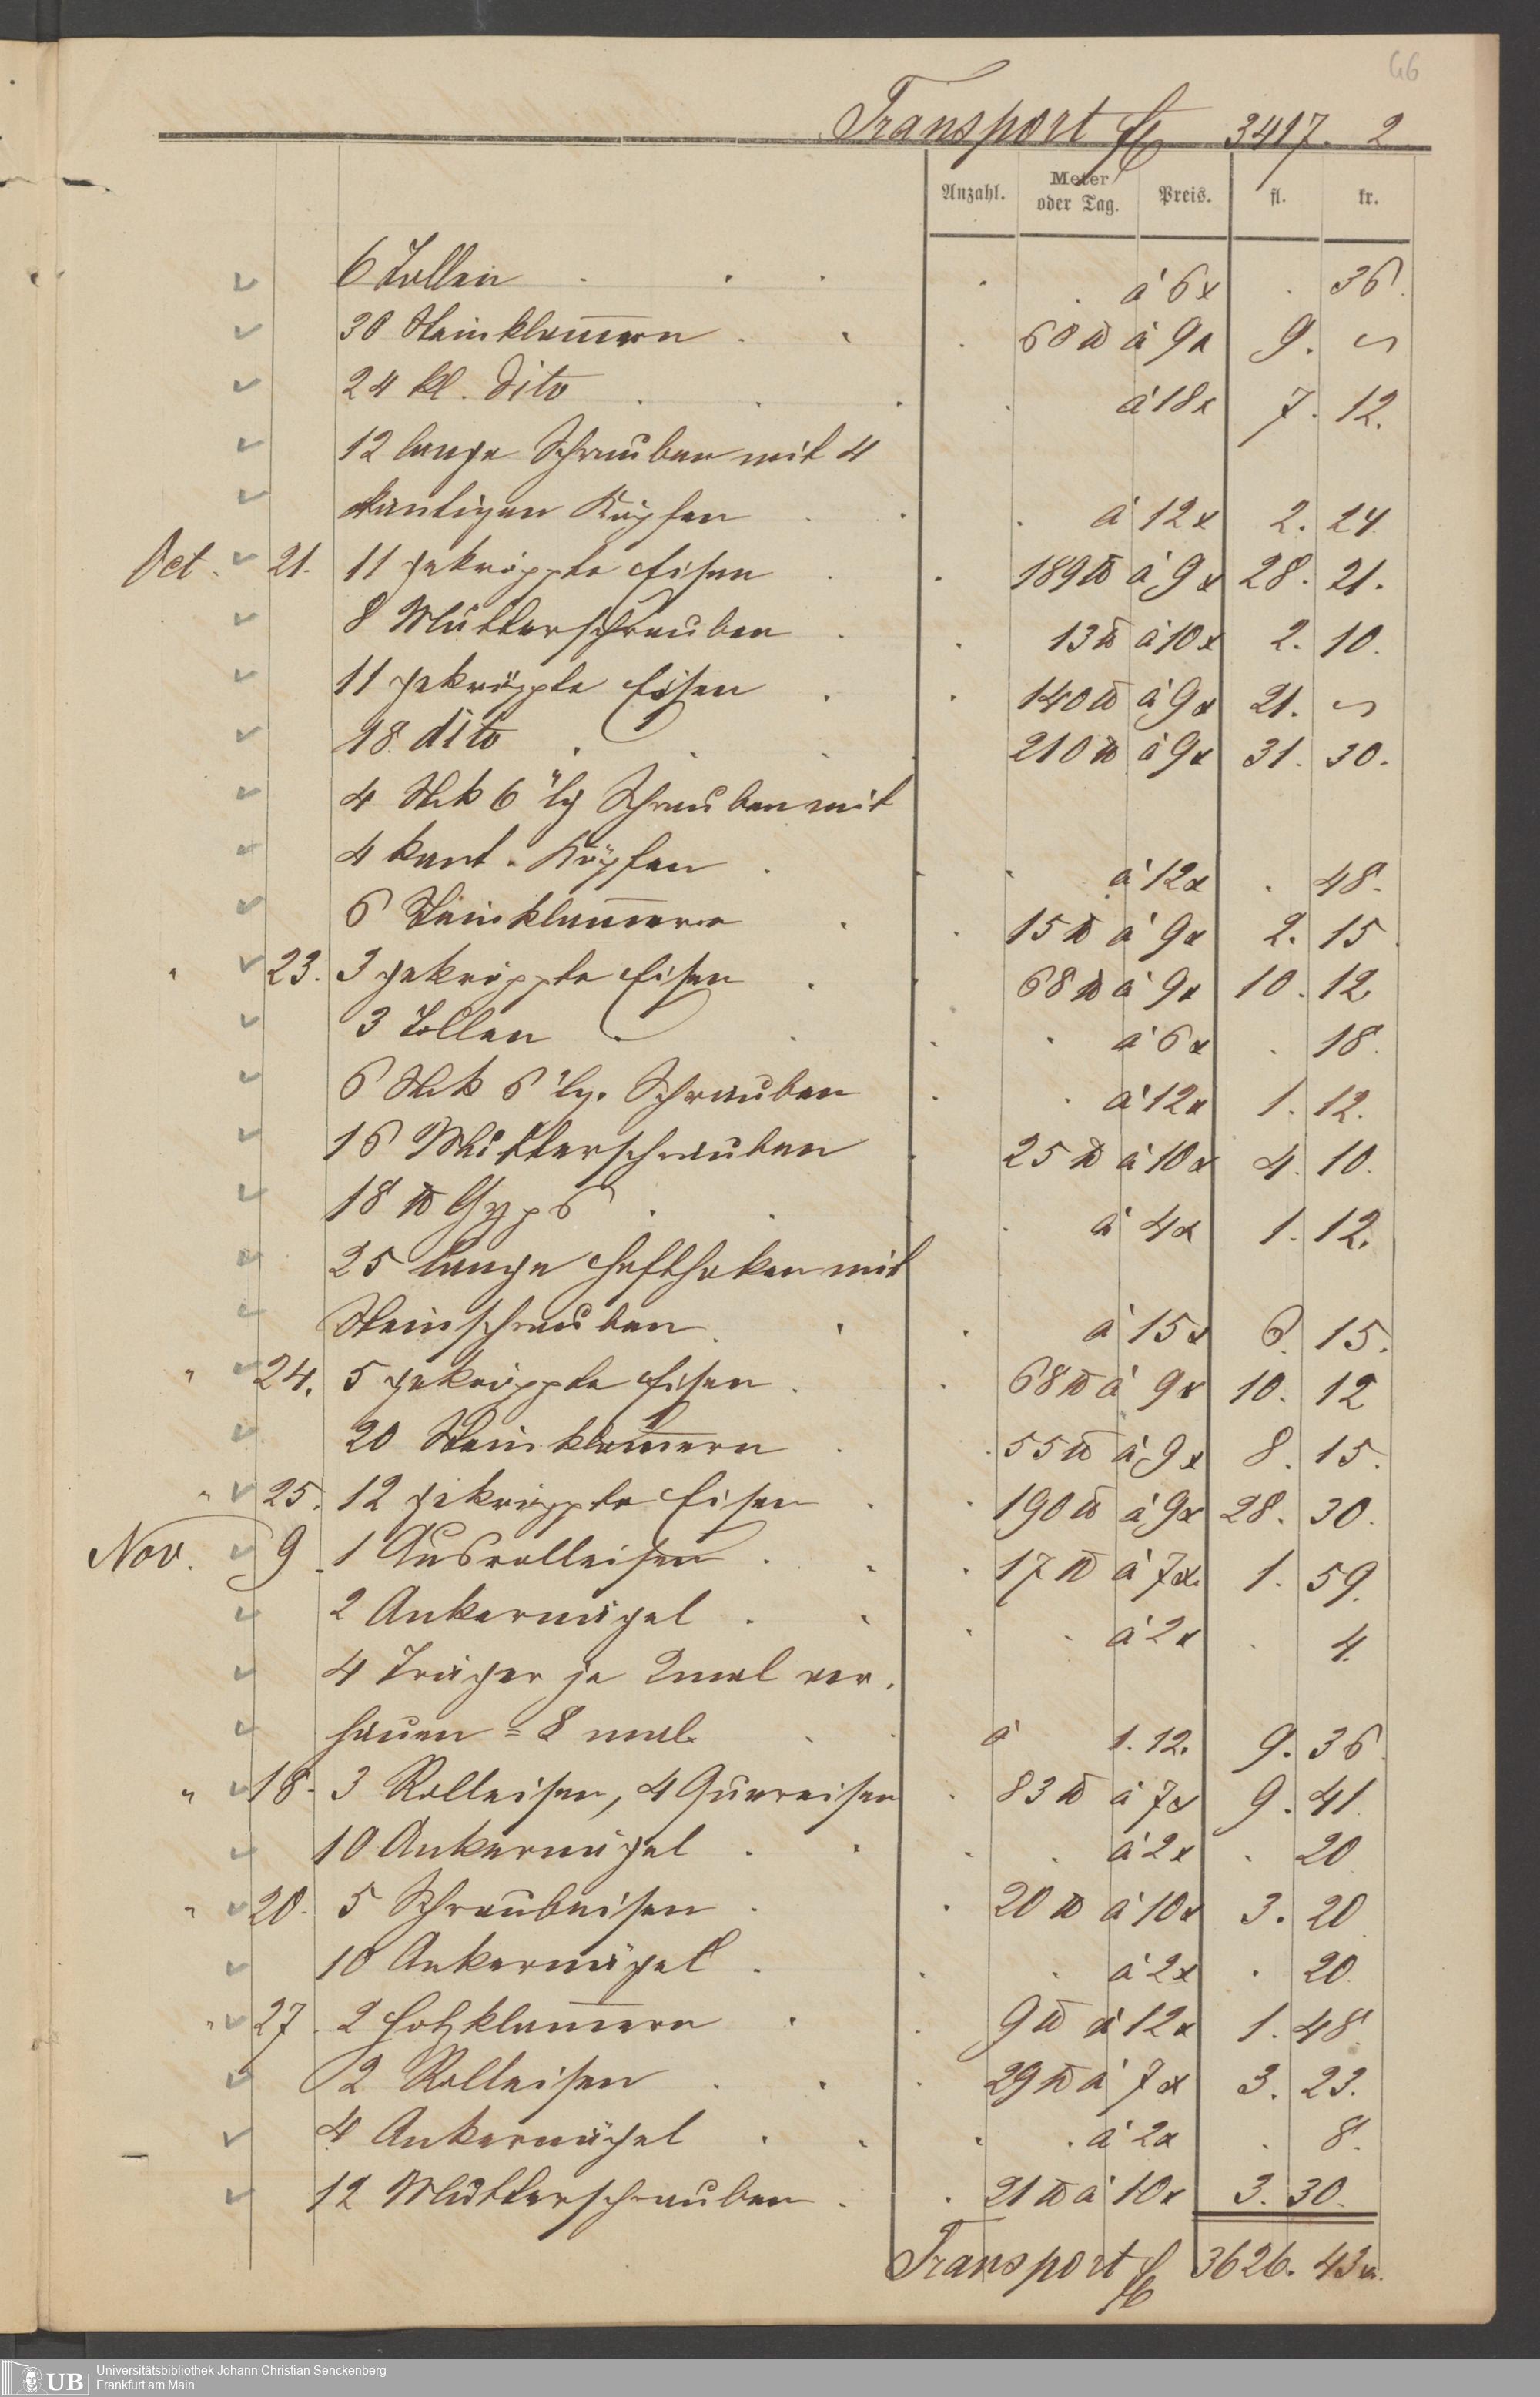 66
Transport fl 3417. 2
Anzahl. Meter oder Tag. Preis. fl. kr.
6 Dollen . . . . . à 6x . 36.
30 Steinklam̅ern . . . 60 ℔ à 9x 9. ∽
24 kl. dito . . . . à 18x 7. 12.
12 lange Schrauben mit 4
kantigen Köpfen . . . à 12x 2. 24.
Oct. 21. 11 gekröppte Eisen . . 189 ℔ à 9x 28. 21.
8 Mutterschrauben . . 13 ℔ à 10x 2. 10.
11 gekröppte Eisen . . 140 ℔ à 9x 21. ∽
18 dito . . . . 210 ℔ à 9x 31. 30.
4 Stck 6" lg Schrauben mit
4 kant. Köpfen . . . à 12x . 48.
6 Steinklam̅ern . . 15 ℔ à 9x 2. 15.
" 23. 3 gekröppte Eisen . . 68 ℔ à 9x 10. 12
3 Dollen . . . . à 6x . 18.
6 Stck 6" lg. Schrauben . . à 12x 1. 12.
16 Mutterschrauben . 25 ℔ à 10x 4. 10.
18 ℔ Gyps . . . . à 4x 1. 12.
25 lange Hefthaken mit
Steinschrauben . . . à 15x 6. 15.
" 24. 5 gekröppte Eisen . . 68 ℔ à 9x 10. 12
20 Steinklam̅ern . . 55 ℔ à 9x 8. 15.
" 25. 12 gekröppte Eisen . . 190 ℔ à 9x 28. 30.
Nov. 9. 1 Ausrolleisen . . . 17 ℔ à 7x. 1. 59.
2 Ankernägel . . . . à 2x . 4.
4 Träger je 2mal ver-
hauen = 8 mal . . à 1. 12. 9. 36.
" 18. 3 Rolleisen, 4 Quereisen . 83 ℔ à 7x 9. 41.
10 Ankernägel . . . . à 2x . 20
" 20. 5 Schraubeisen . . 20 ℔ à 10x 3. 20.
10 Ankernägel . . . à 2x . 20.
" 27. 2 Holzklam̅ern . . 9 ℔ à 12x 1. 48.
2 Rolleisen . . . 29 ℔ à 7x 3. 23.
4 Ankernägel . . . . à 2x . 8.
12 Mutterschrauben . . 21 ℔ à 10x 3. 30.
Transport fl 3626. 43x.
UB Universitätsbibliothek Johann Christian Senckenberg
Frankfurt am Main